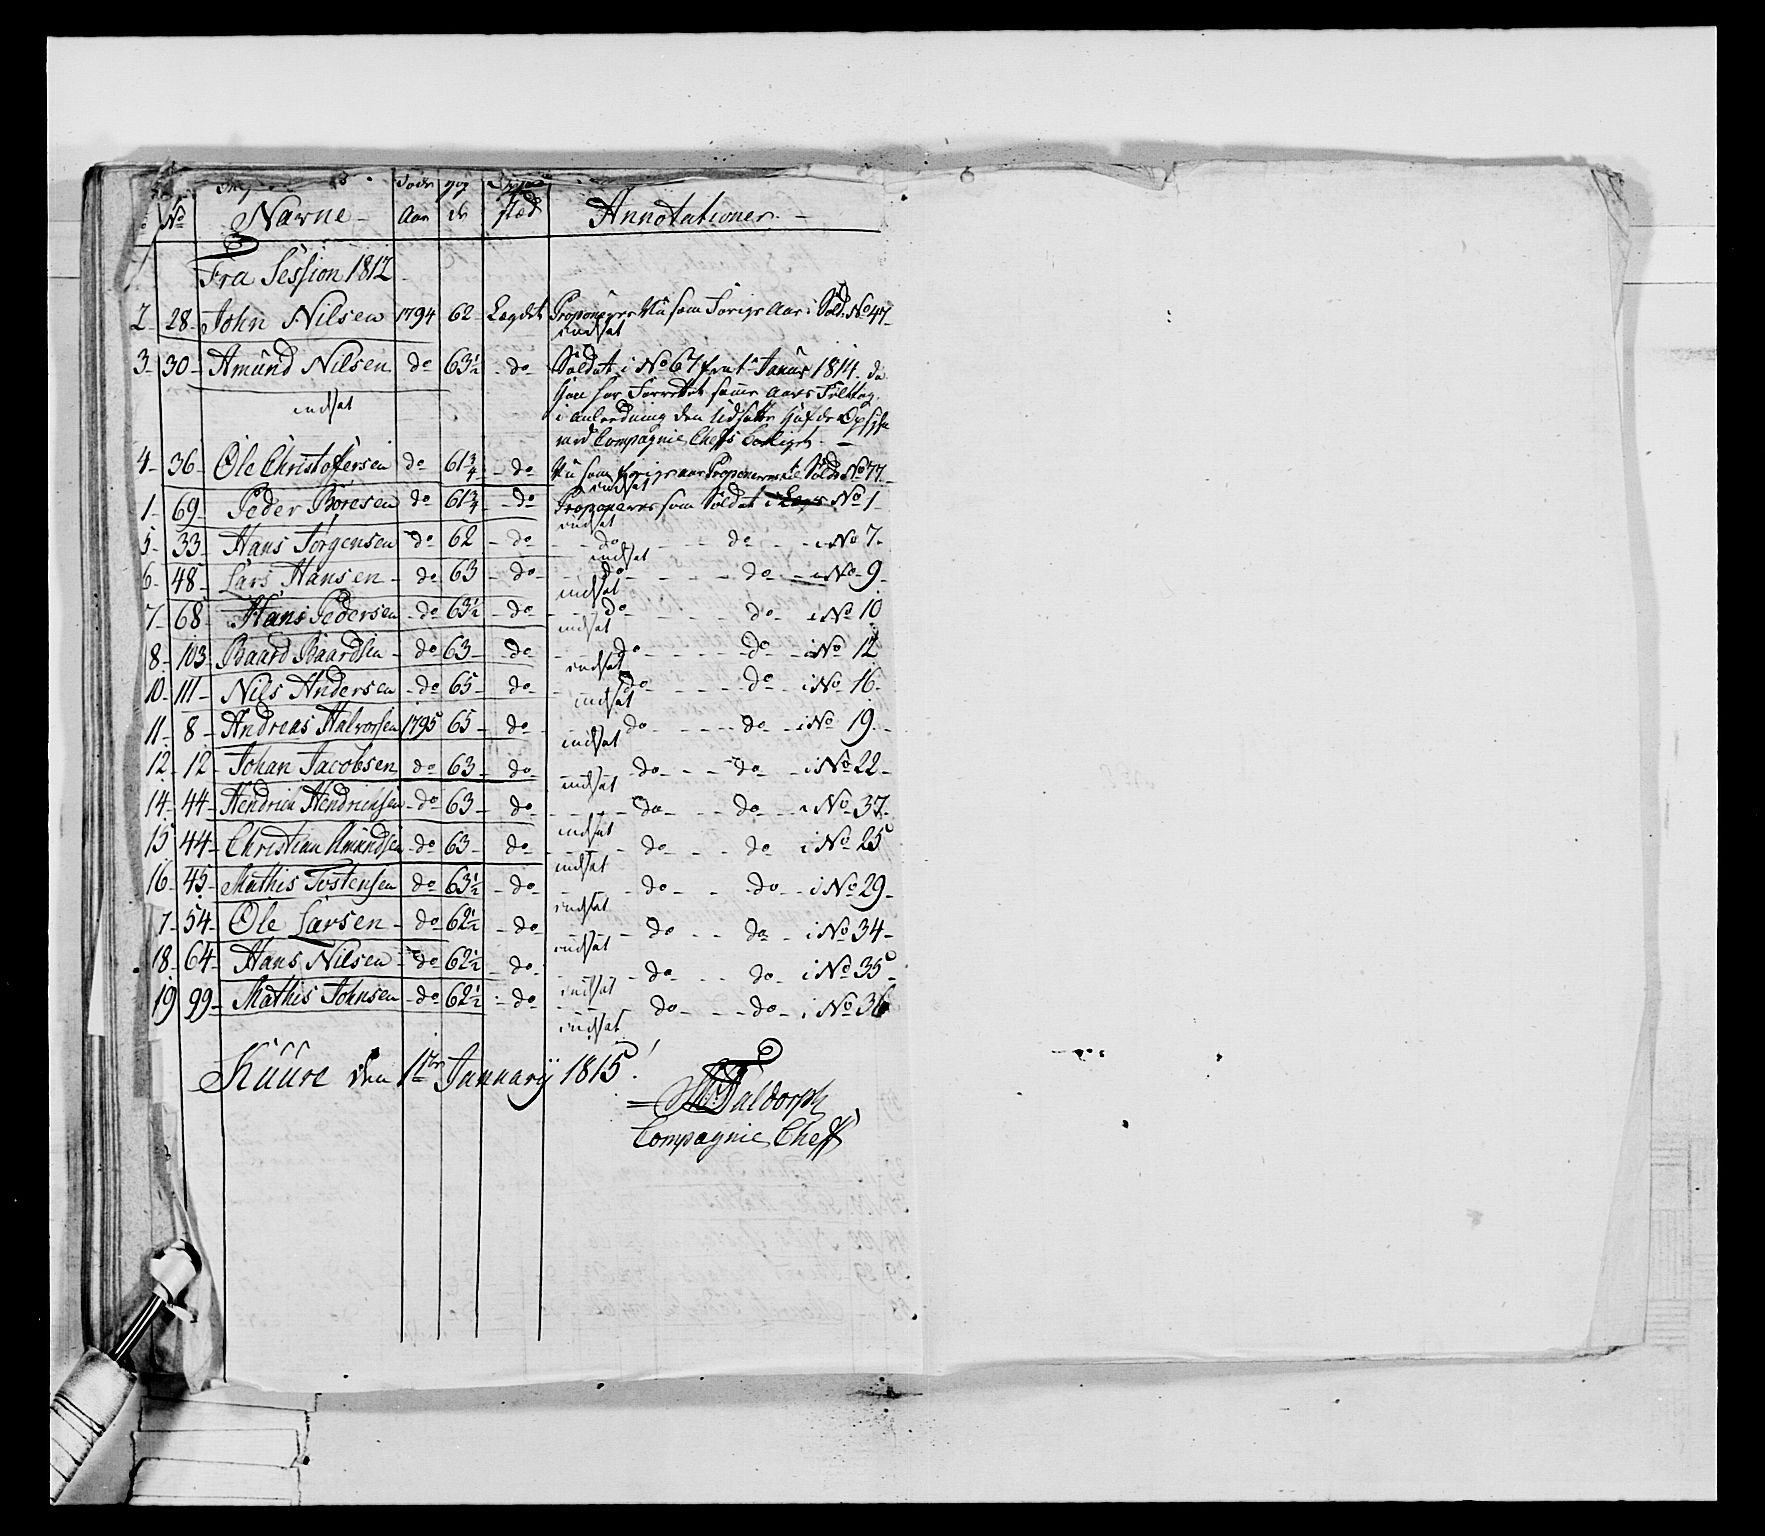 No Navne Aar stæd Annotationer
Fra Session 1812
2 28 John Nilsen 1794 62 Lægdet Proponeres Nu som Forige Aar i Sold: No 47
indsat
3 30 Amund Nilsen do 63½ do Soldat i No 67 fra 1te Januar 1814 da
indsat
han har Forrettet samme Aars Felttog
i anledning den Udsatte
med Compagnie Chefs
4 36 Ole Christofersen do 61¾ do Nu som forige aar Proponeres til Sold: No 77
indsat
1 69 Peder Boresen do 61¾ do Proponeres som Soldat i No 1
indsat
5 33 Hans Jørgensen do 62 do do do i No 7
indsat
6 48 Lars Hansen do 63 do do do i No 9
indsat
7 68 Hans Pedersen do 63½ do do do i No 10
indsat
8 103 Baard Baardsen do 63 do do do i No 12
indsat
10 111 Nils Andersen do 65 do do do i No 16
indsat
11 8 Andreas Halvorsen 1795 65 do do do i No 19
indsat
12 12 Johan Jacobsen do 63 do do do i No 22
indsat
14 44 Hendrich Hendrichsen do 63 do do do i No 37
indsat
15 44 Christian Amundsen do 63 do do do i No 25
indsat
16 45 Mathis Tostensen do 63½ do do do i No 29
indsat
7 54 Ole Larsen do 62½ do do do i No 34
indsat
18 64 Hans Nilsen do 62½ do do do i No 35
indsat
19 99 Mathis Johnsen do 62½ do do do i No 36
indsat
Kuure den 1te January 1815
Faldorph
Compagnie Cheff